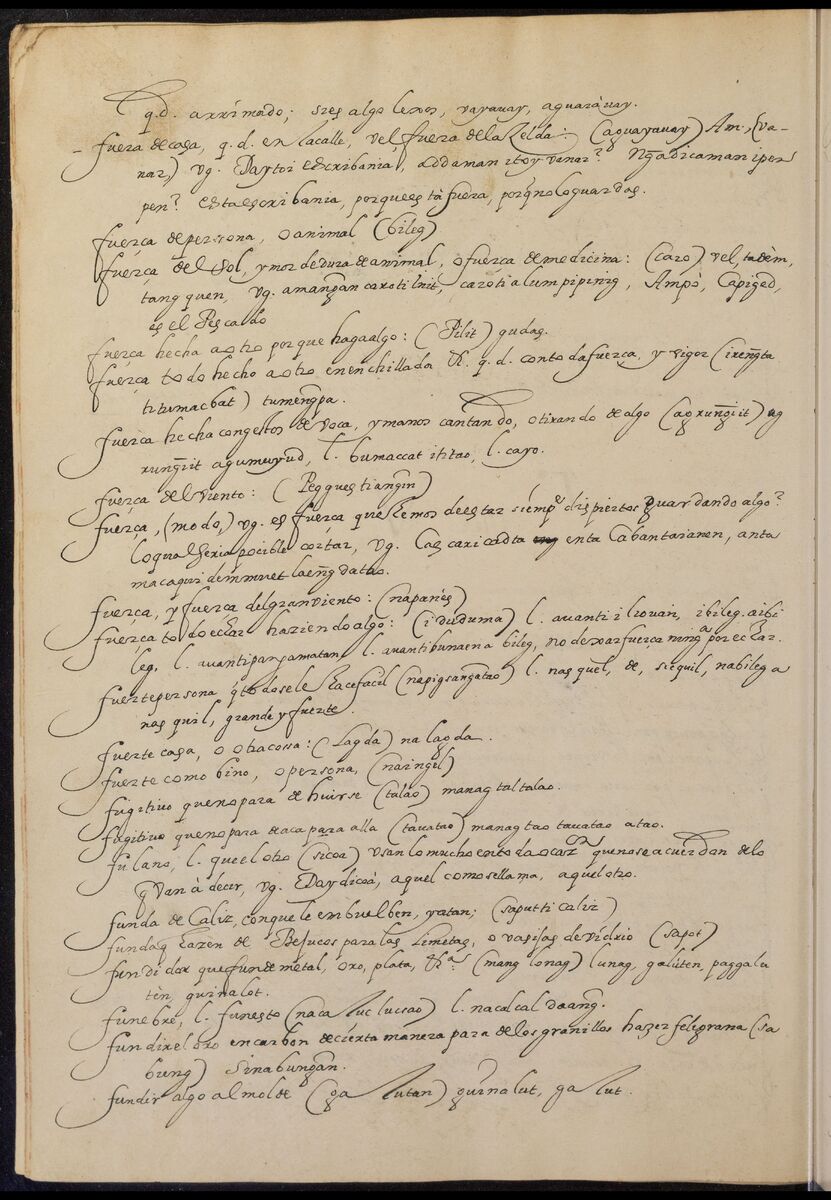 q.d. arrimado; si es algo lexos, vayauay, aguaràuay.
fuera de caça, q.d. en la calle, vel fuera de la Zelda: (aguayauay) Am, (va-
nar,) vg. Daytoi escribania, addaman itoy vanar? Ngadicaman iper
pen? Esta escribania, porque es tà fuera, porq̃ no lo guardas.
fuerça de persona, o animal (bileg)
fuerça del sol, y mordedura de animal, o fuerça de medicina: (caro) vel, tadèm,
tangquen, vg. amangan caro ti lnit, caro ti alumpipinig, Ampò, Capiged,
es el Pescado
fuerça hecha a otro porque haga algo: (Pilit) gudas.
fuerça todo hecho a otro en enchillada &. q.d. con toda fuerça, y vigor (irengta
titumacbat) tumengpa.
fuerça hecha con gestos de voca, y manos cantando, o tirando de algo (agrungiit) ag
rungiit agumuyud, l. bumaccat ititao, l. cayo.
fuerça del viento: (Pegguestiangin)
fuerça, (modo,) vg. es fuerça que hemos de estar siemp.e dispiertos guardando algo?
lo qual seria pocible cortar, vg. Cas caricadta enta Cabantaianen, anta
macaqui demmuet laeng datao.
fuerça, y fuerça del gran viento: (napanès)
fuerça todo echar haziendo algo: (iduduma) l. auanti ilivuan, ibileg. aibi
leg, l. auanti panyamatan l. auanti bunaena bileg, no dexar fuerça ning.a por echar.
fuerte persona q̃ todo se le hace facil (napigsangatao) l. nasquel, de, sicquil, nabileg a
nasquil, grande y fuerte.
fuerte caça, o otra cossa: (lagda) na lagda.
fuerte como bino, o persona, (naingel)
fugitivo que no para de huirse (talao) managtaltalao.
fugitivo que no para de aca para alla (tavatao) managtao tavatao atao.
fulano, l. que el otro (sicoa) usan lo mucho en toda ocaz.on que no se acuerdan de lo
q̃ van à decir, vg. Daydicoà, aquel como se llama, aquel otro.
funda de Caliz, con que le embuelben, ratan; (saputticaliz)
fundaq hazen de Befucos para las limetas, o vasijas de vidrio (sapot)
fundidor que funde metal, oro, plata, &a. (manglonag) lunag, galùten, paggalu
tèn, guinalot.
funebre, l. funesto (nacalluclucsao) l. nacalcaldaang.
fundir el oro en carbon de cierta manera para de los granillos hazer feligrana (sa
bung) sinabungan.
fundir algo al molde (gallutan) guinalut, gallut.